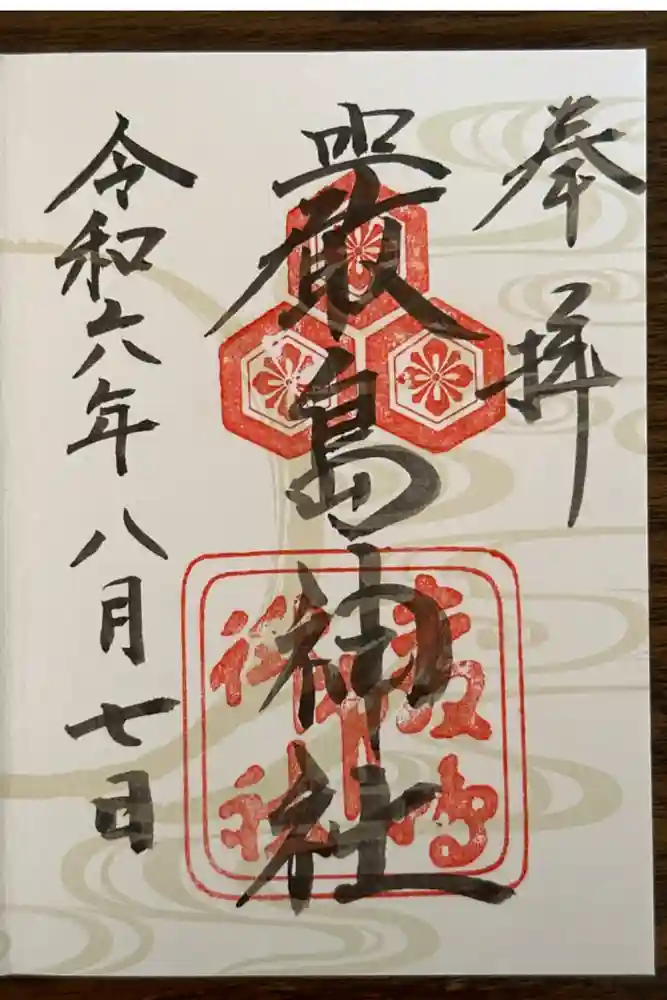 奉拝
嚴島神社
令和六年八月七日